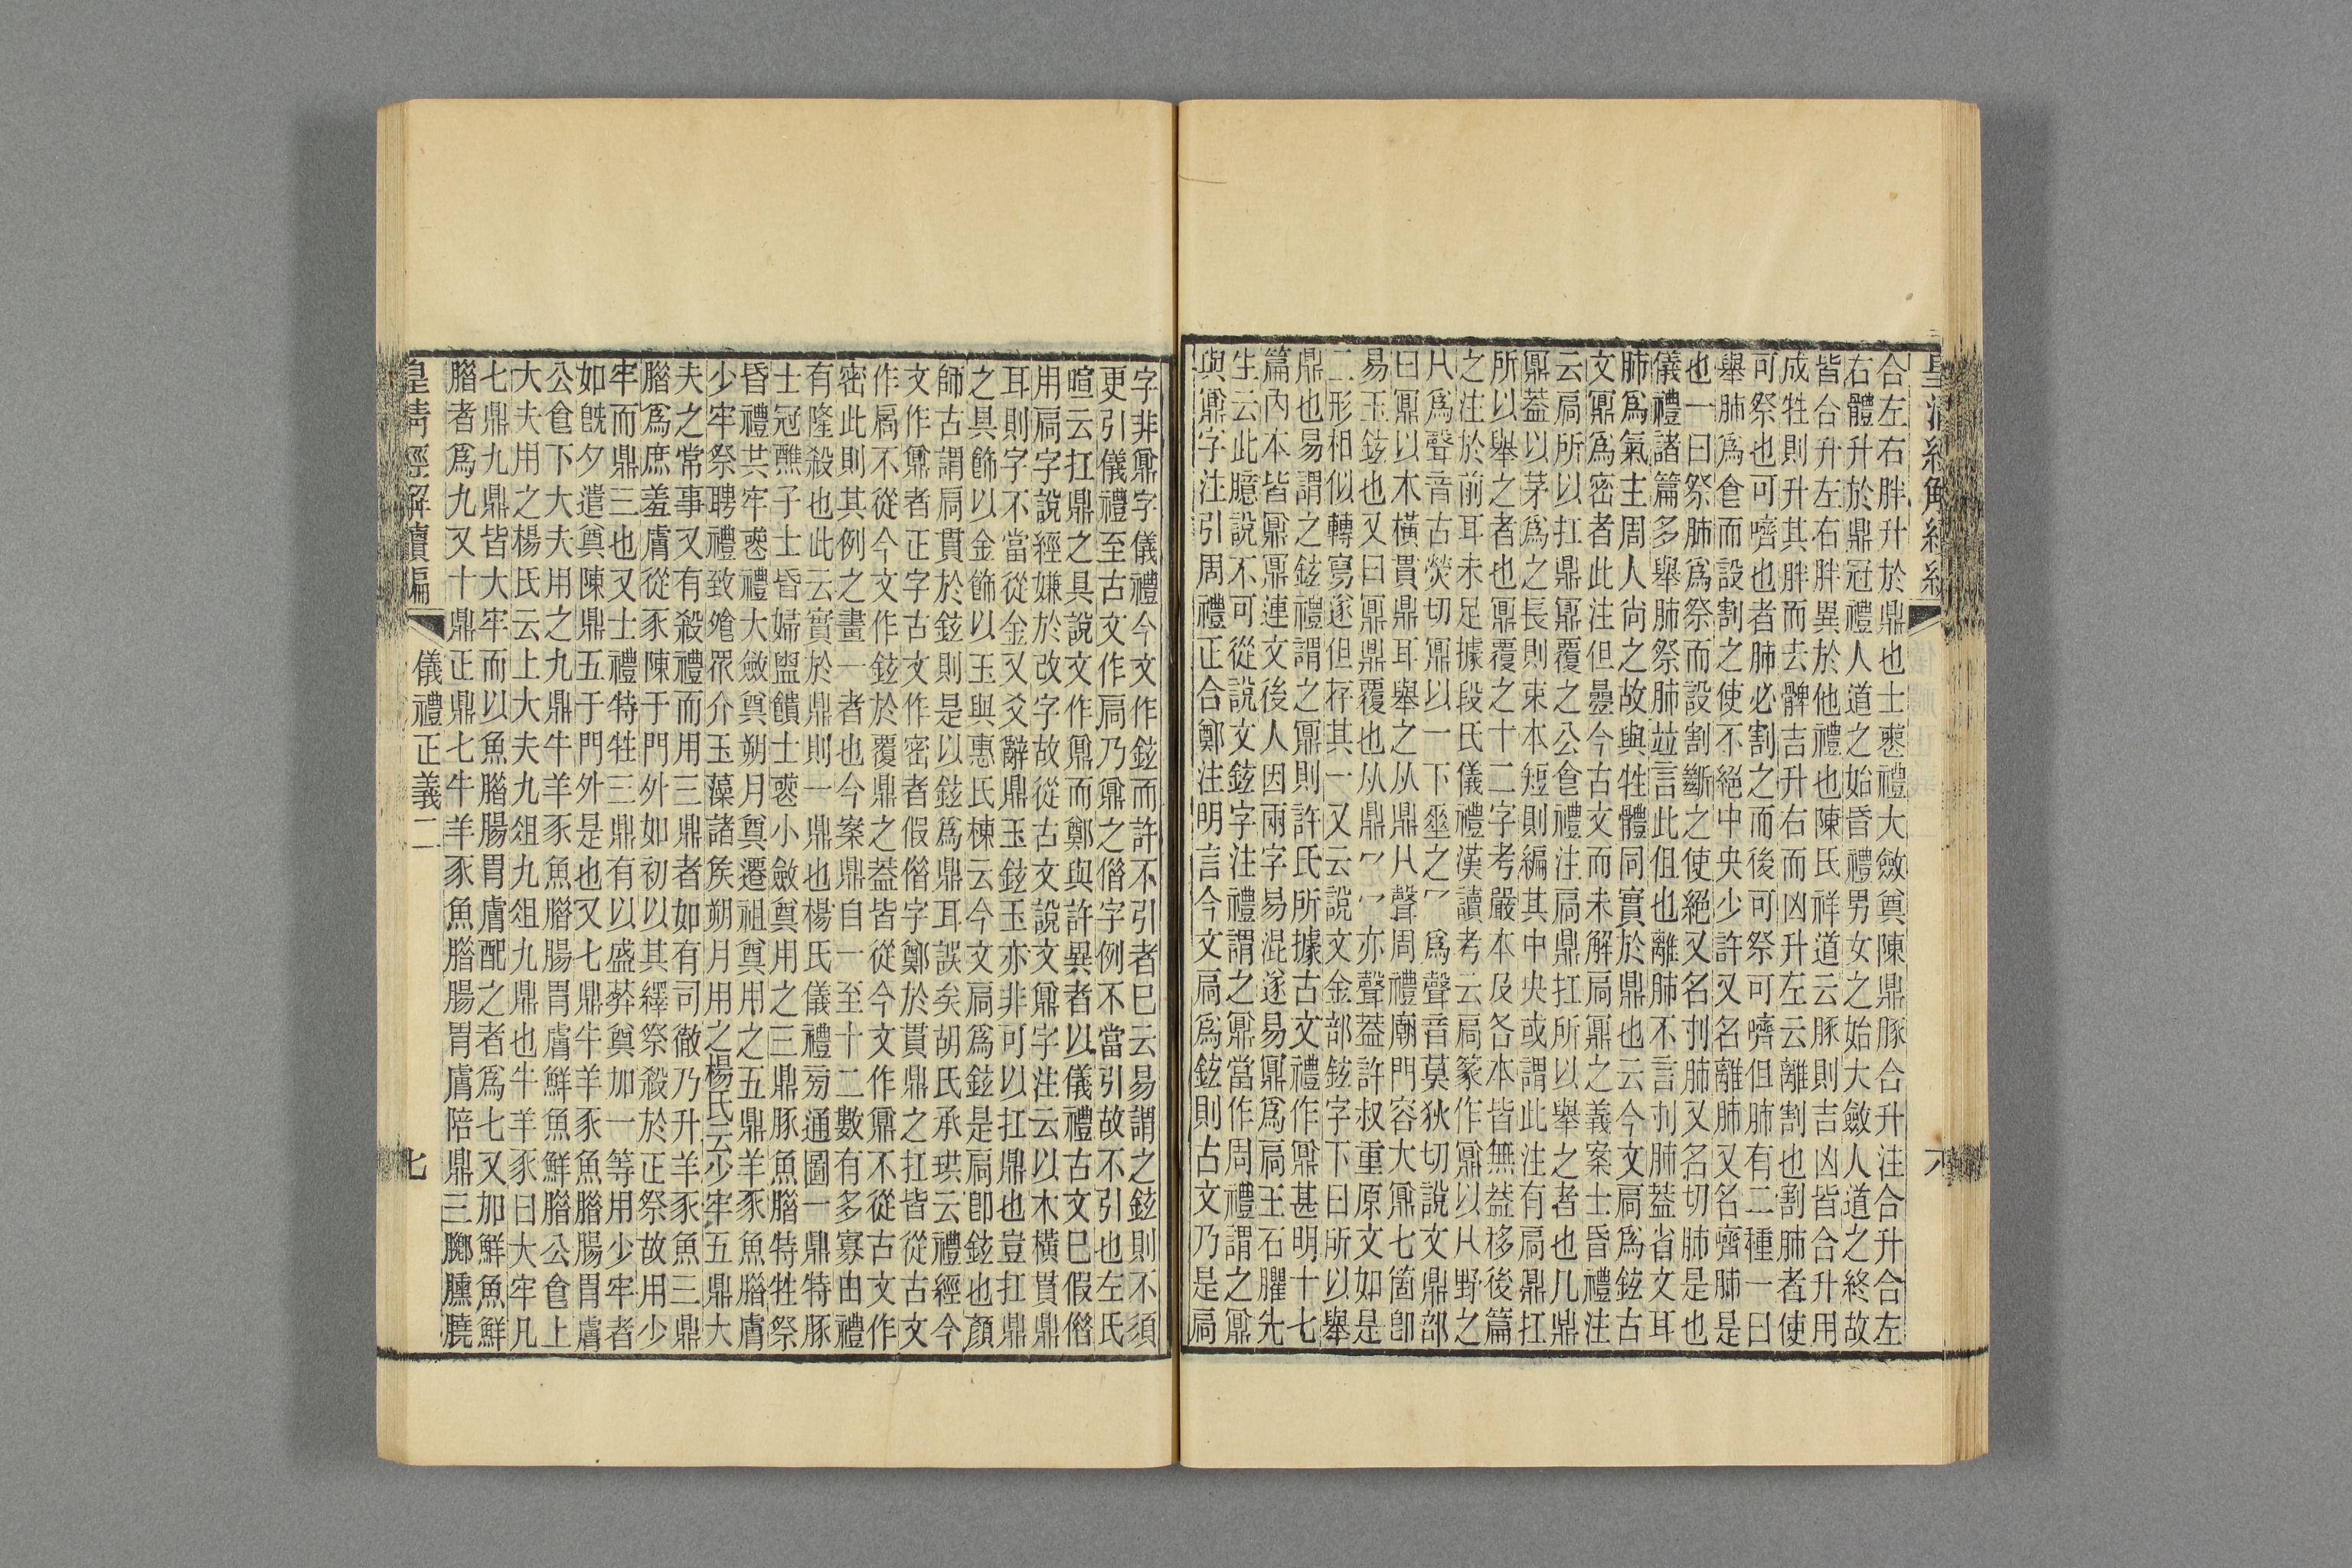 皇清經解續編
合左右胖升於鼎也士喪禮大斂奠陳鼎豚合升注合升合左
右體升於鼎冠禮人道之始昏禮男女之始大斂人道之終故
皆合升左右胖異於他禮也陳氏祥道云豚則吉凶皆合升用
成牲則升其胖而去髀吉升右而凶升左云離割也割肺者使
可祭也可嚌也者肺必割之而後可祭可嚌但肺有二種一曰
舉肺爲食而設割之使不絕中央少許又名離肺又名嚌肺是
也一曰祭肺爲祭而設割斷之使絕又名刌肺又名切肺是也
儀禮諸篇多舉肺祭肺竝言此但也離肺不言刌肺蓋省文耳
肺爲氣主周人尚之故與牲體同實於鼎也云今文扃爲鉉古
文鼏爲密者此注但曡今古文而未解扃鼏之義案士昏禮注
云扃所以扛鼎鼏覆之公食禮注扃鼎扛所以舉之者也凡鼎
鼏蓋以茅爲之長則束本短則編其中央或謂此注有扃鼎扛
所以舉之者也鼏覆之十二字考嚴本及各本皆無蓋移後篇
之注於前耳未足據段氏儀禮漢讀考云扃篆作鼏以𠘨野之
𠘨爲聲音古熒切鼏以一下垂之冖爲聲音莫狄切說文鼎部
曰鼏以木橫貫鼎耳舉之从鼎𠘨聲周禮廟門容大鼏七箇卽
易玉鉉也又曰鼏鼎覆也从鼎冖冖亦聲蓋許叔重原文如是
二形相似轉寫遂但存其一又云說文金部鉉字下曰所以舉
鼎也易謂之鉉禮謂之鼏則許氏所據古文禮作鼏甚明十七
篇內本皆鼏鼏連文後人因兩字易混遂易鼏爲扃王石臞先
生云此臆說不可從說文鉉字注禮謂之鼏當作周禮謂之鼏
與鼏字注引周禮正合鄭注明言今文扃爲鉉則古文乃是扃
字非鼏字儀禮今文作鉉而許不引者已云易謂之鉉則不須
更引儀禮至古文作扃乃鼏之借字例不當引故不引也左氏
喧云扛鼎之具說文作鼏而鄭與許異者以儀禮古文已假借
用扃字說經嫌於改字故從古文說文鼏字注云以木橫貫鼎
耳則字不當從金又爻辭鼎玉鉉玉亦非可以扛鼎也豈扛鼎
之具飾以金飾以玉與惠氏棟云今文扃爲鉉是扃卽鉉也顏
師古謂扃貫於鉉則是以鉉爲鼎耳誤矣胡氏承珙云禮經今
文作鼏者正字古文作密者假借字鄭於貫鼎之扛皆從古文
作扃不從今文作鉉於覆鼎之蓋皆從今文作鼏不從古文作
密此則其例之畫一者也今案鼎自一至十二數有多寡由禮
有隆殺也此云實於鼎則一鼎也楊氏儀禮旁通圖一鼎特豚
士冠醮子士昏婦盥饋士喪小斂奠用之三鼎豚魚腊特牲祭
昏禮共牢喪禮大斂奠朔月奠遷祖奠用之五鼎羊豕魚腊膚
少牢祭聘禮致飧眾介玉藻諸矦朔月用之楊氏云少牢五鼎大
夫之常事又有殺禮而用三鼎者如有司徹乃升羊豕魚三鼎
腊爲庶羞膚從豕陳于門外如初以其繹祭殺於正祭故用少
牢而鼎三也又士禮特牲三鼎有以盛葬奠加一等用少牢者
如旣夕遣奠陳鼎五于門外是也又七鼎牛羊豕魚腊腸胃膚
公食下大夫用之九鼎牛羊豕魚腊腸胃膚鮮魚鮮腊公食上
大夫用之楊氏云上大夫九俎九俎九鼎也牛羊豕曰大牢凡
七鼎九鼎皆大牢而以魚腊腸胃膚配之者爲七又加鮮魚鮮
腊者爲九又十鼎正鼎七牛羊豕魚腊腸胃膚陪鼎三膷臐膮
皇清經解續編 儀禮正義二 七